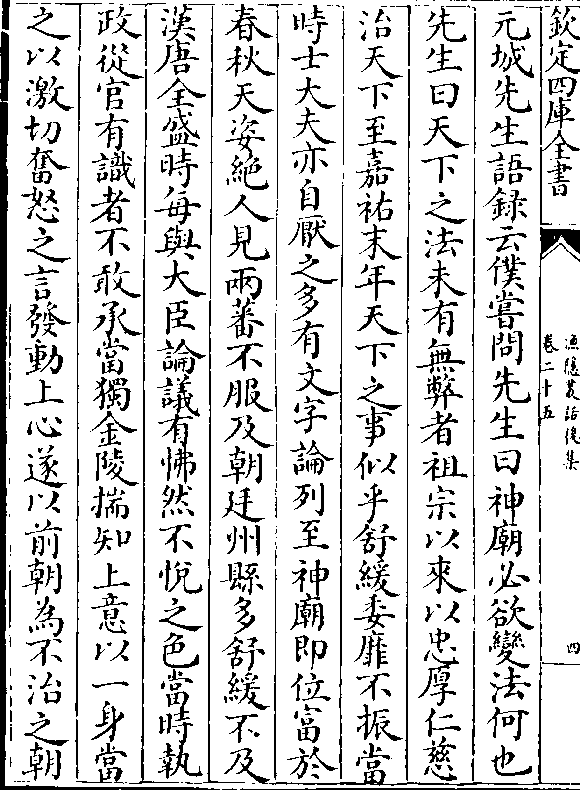 欽定四庫全書
漁隱叢話後集
卷二十五
四
元城先生語録云僕嘗問先生曰神廟必欲變法何也
先生曰天下之法未有無弊者祖宗以來以忠厚仁慈
治天下至嘉祐末年天下之事似乎舒緩委靡不振當
時士大夫亦自厭之多有文字論列至神廟即位富於
春秋天姿絶人見兩蕃不服及朝廷州縣多舒緩不及
漢唐全盛時每與大臣論議有怫然不悅之色當時執
政從官有識者不敢承當獨金陵揣知上意以一身當
之以激切奮怒之言發動上心遂以前朝為不治之朝